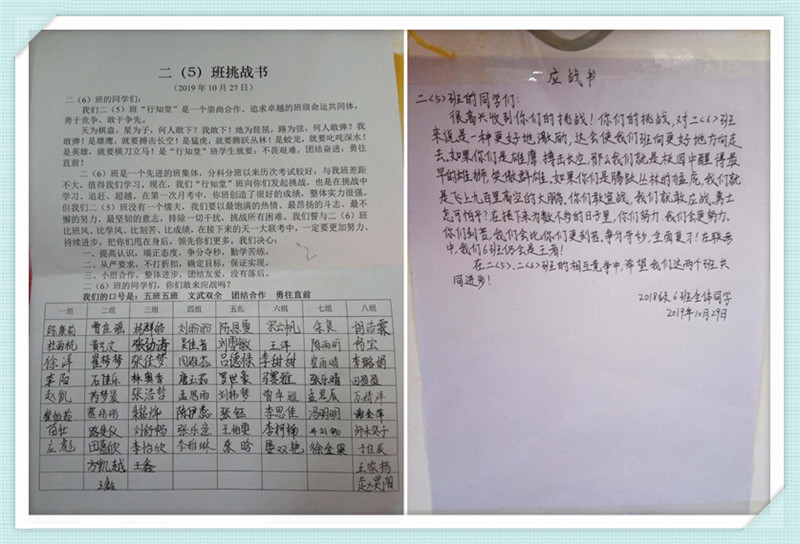 二（5）班挑战书
（2019 年 10 月 27 日）
二（6）班的同学们：
我们二（5）班“行知堂”是一个崇尚合作、追求卓越的班级命运共同体，
勇于竞争、敢于争先。
天为棋盘，星为子，何人敢下？我敢下！地为琵琶，路为弦，何人敢弹？我
敢弹！是雄鹰，就要搏击长空！是猛虎，就要腾跃丛林！是蛟龙，就要叱咤深水！
是英雄，就要横刀立马！是“行知堂”班学生就要：不畏艰难，团结奋进，勇往
直前！
二（6）班是一个先进的班集体，分科分班以来历次考试较好，与我班差距
不大，值得我们学习。现在，我们“行知堂”班向你们发起挑战，也是在挑战中
学习、追赶、超越。在第一次月考中，你班创造了很好的成绩，整体实力很强。
但我们二（5）班没有一个懦夫，我们要以最饱满的热情、最昂扬的斗志、最不
懈的努力、最坚韧的意志，排除一切干扰，挑战所有困难。我们誓与二（6）班
比班风、比学风、比刻苦、比成绩，在接下来的天一大联考中，一定要更加努力、
持续进步，把你们甩在身后，领先你们更多。我们决心：
一、提高认识，端正态度，争分夺秒，勤学苦练。
二、从严要求，不打折扣，确定目标，保证实现。
三、小组合作，整体进步，团结友爱，没有落后。
二（6）班的同学们，你们敢来应战吗？
我们的口号是：五班五班 文武双全 团结合作 勇往直前
一组 二组 三组 四组 五组 六组 七组 八组
林群皓 宋云帆 余良
张劭涛 王洋
徐洋 崔梦梦 张佳梦 吕德禄 李甜甜
李阳 石佳乐 林奥香 张乐晴 田盈盈
赵凯 芮梦晨 张浩哲 孟思雨 刘书梦
张钰 李思佳 冯明明
刘舒畅 张乐远 王怡更 李柯楠
李怡欣 李雅琳 秦晗 徐金果
方凯越 王鑫
应战书
二〈5〉班的同学们：
很高兴收到你们的挑战！你们的挑战，对二〈6〉班
来说是一种更好地激励，这会使我们班向更好地方向走
去。如果你们是雄鹰搏击长空，那么我们就是旅图中醒得最
早的雄狮，笑傲群雄。如果你们是腾跃丛林的猛虎，我们就
是飞上九百里高空的大鹏。你们敢宣战，我们就敢应战，勇士
怎可怕乎？在接下来为数不多的日子里，你们努力，我们会更努力。
你们刻苦，我们会比你们更刻苦。争分夺秒，全面复习！在联考
中，我们6班仍会是王者！
在二〈5〉、二〈6〉班的相互竞争中，希望我们这两个班共
同进步！
2018级6班全体同学
2019年10月29日